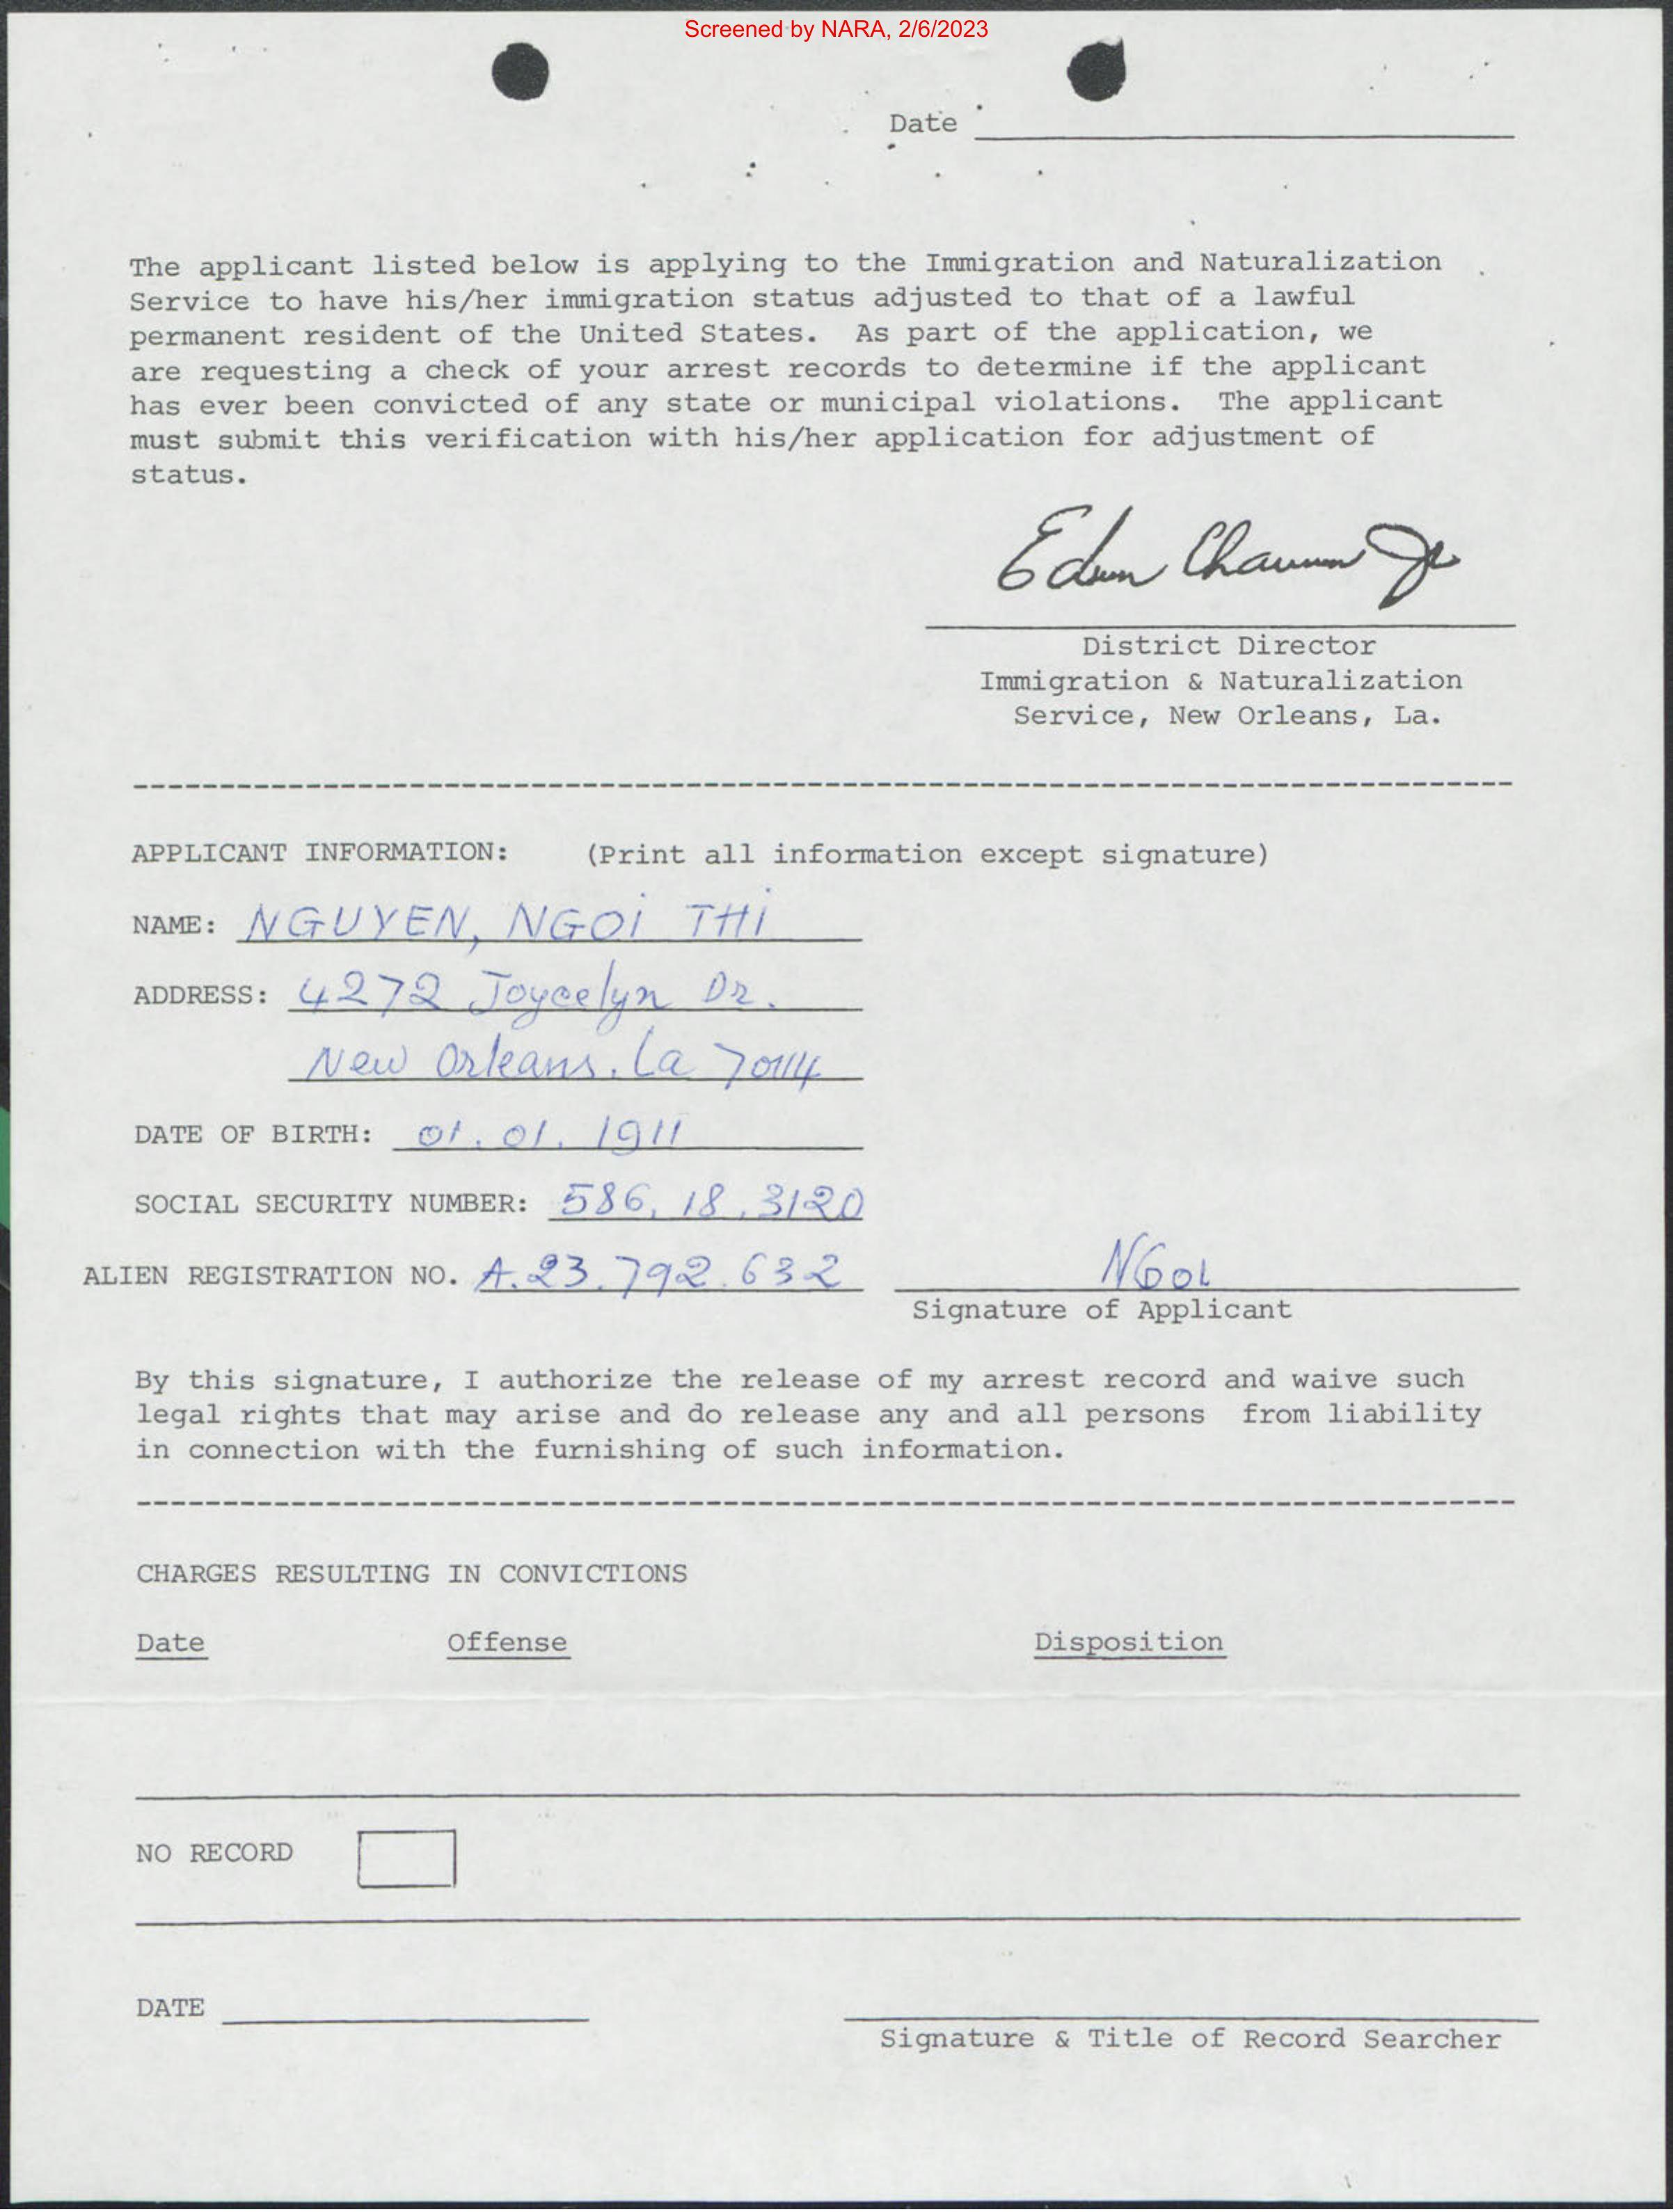 Screened by NARA, 2/6/2023
Date
The applicant listed below is applying to the Immigration and Naturalization
Service to have his/her immigration status adjusted to that of a lawful
permanent resident of the United States. As part of the application, we
are requesting a check of your arrest records to determine if the applicant
has ever been convicted of any state or municipal violations. The applicant
must submit this verification with his/her application for adjustment of
status.
District Director
Immigration & Naturalization
Service, New Orleans, La.
APPLICANT INFORMATION: (Print all information except signature)
NAME: NGUYEN, NGOI THI
ADDRESS: 4272 Joycelyn Dr.
New Orleans. La 70114
DATE OF BIRTH: 01.01.1911
SOCIAL SECURITY NUMBER: 586.18.3120
ALIEN REGISTRATION NO. A.23.792.632 NGOI
Signature of Applicant
By this signature, I authorize the release of my arrest record and waive such
legal rights that may arise and do release any and all persons from liability
in connection with the furnishing of such information.
CHARGES RESULTING IN CONVICTIONS
Date Offense Disposition
NO RECORD
DATE
Signature & Title of Record Searcher